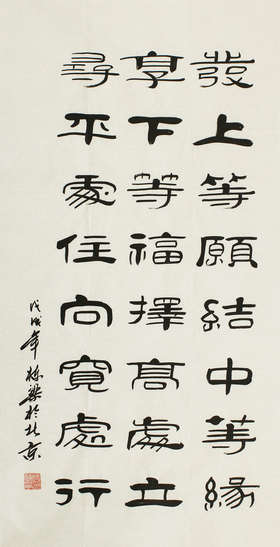 發上等願結中等緣
享下等福擇高處立
尋平處住向寬處行
戊戌年栋梁於北京